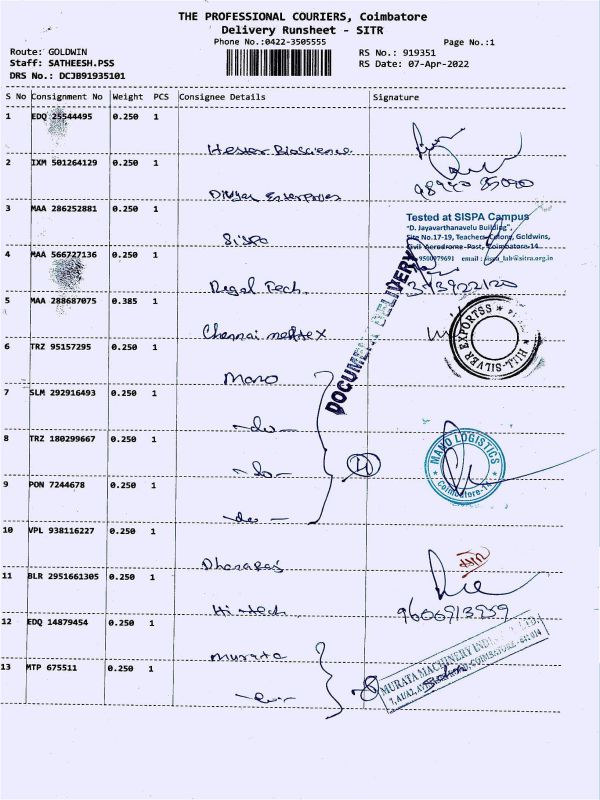 THE PROFESSIONAL COURIERS, Coimbatore
Delivery Runsheet - SITR
Phone No.:0422-3505555
Page No.:1
Route: GOLDWIN
Staff: SATHEESH.PSS
DRS No.: DCJB91935101
RS No.: 919351
RS Date: 07-Apr-2022
S No Consignment No Weight PCS Consignee Details Signature
1 EDQ 25544495 0.250 1
Hester Bioscience
2 IXM 501264129 0.250 1
Enterprises
3 MAA 286252881 0.250 1
Sispa
Tested at SISPA Campus
"D. Jayavarthanavelu Building",
Site No.17-19, Teachers Colony, Goldwins,
Civil Aerodrome Post, Coimbatore-14
9500979691 email : sispa_lab@sitra.org.in
4 MAA 566727136 0.250 1
Regal Tech
DOCUMENT DELIVERY
5 MAA 288687075 0.385 1
Chennai
HILL-SILVER EXPORTSS
6 TRZ 95157295 0.250 1
Mano
7 SLM 292916493 0.250 1
-do-
8 TRZ 180299667 0.250 1
-do-
4
MANO LOGISTICS
Coimbatore-14
9 PON 7244678 0.250 1
-do-
10 VPL 938116227 0.250 1
11 BLR 2951661305 0.250 1
Hi-tech
9600913959
12 EDQ 14879454 0.250 1
Murata
13 MTP 675511 0.250 1
MURATA MACHINERY
COIMBATORE - 641 014